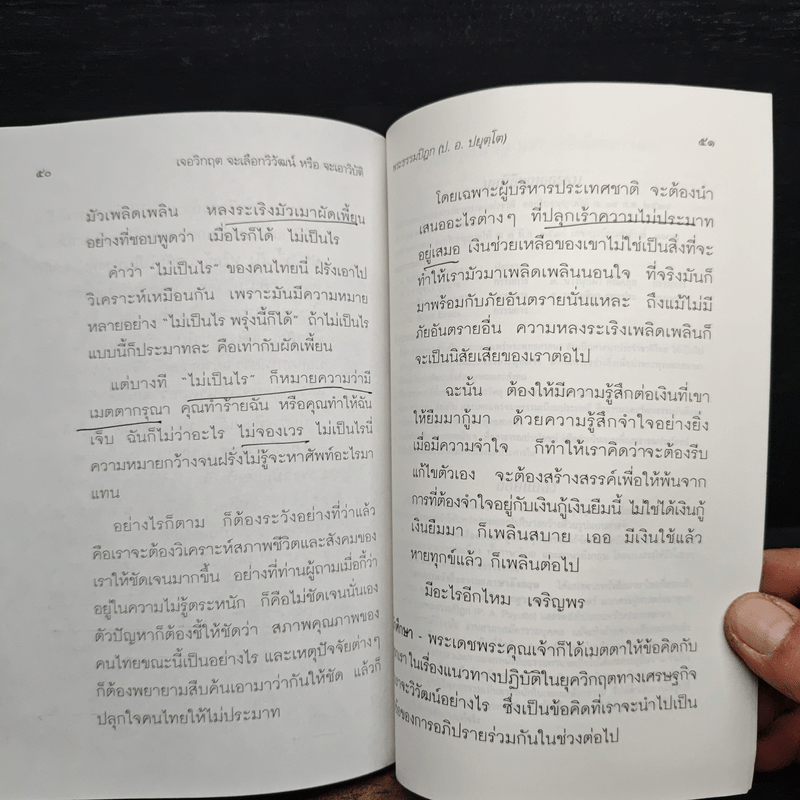 ๕๐
เจอวิกฤต จะเลือกวิวัฒน์ หรือ จะเอาวิบัติ
มัวเพลิดเพลิน หลงระเริงมัวเมาผัดเพี้ยน
อย่างที่ชอบพูดว่า เมื่อไรก็ได้ ไม่เป็นไร
คำว่า “ไม่เป็นไร” ของคนไทยนี่ ฝรั่งเอาไป
วิเคราะห์เหมือนกัน เพราะมันมีความหมาย
หลายอย่าง “ไม่เป็นไร พรุ่งนี้ก็ได้” ถ้าไม่เป็นไร
แบบนี้ก็ประมาทละ คือเท่ากับผัดเพี้ยน
แต่บางที “ไม่เป็นไร” ก็หมายความว่ามี
เมตตากรุณา คุณทำร้ายฉัน หรือคุณทำให้ฉัน
เจ็บ ฉันก็ไม่ว่าอะไร ไม่จองเวร ไม่เป็นไรนี่
ความหมายกว้างจนฝรั่งไม่รู้จะหาศัพท์อะไรมา
แทน
อย่างไรก็ตาม ก็ต้องระวังอย่างที่ว่าแล้ว
คือเราจะต้องวิเคราะห์สภาพชีวิตและสังคมของ
เราให้ชัดเจนมากขึ้น อย่างที่ท่านผู้ถามเมื่อกี้ว่า
อยู่ในความไม่รู้ตระหนัก ก็คือไม่ชัดเจนนั่นเอง
ตัวปัญหาก็ต้องชี้ให้ชัดว่า สภาพคุณภาพของ
คนไทยขณะนี้เป็นอย่างไร และเหตุปัจจัยต่างๆ
ก็ต้องพยายามสืบค้นเอามาว่ากันให้ชัด แล้วก็
ปลุกใจคนไทยให้ไม่ประมาท
พระธรรมปิฎก (ป. อ. ปยุตฺโต)
๕๑
โดยเฉพาะผู้บริหารประเทศชาติ จะต้องนำ
เสนออะไรต่างๆ ที่ปลุกเร้าความไม่ประมาท
อยู่เสมอ เงินช่วยเหลือของเขาไม่ใช่เป็นสิ่งที่จะ
ทำให้เรามัวมาเพลิดเพลินนอนใจ ที่จริงมันก็
มาพร้อมกับภัยอันตรายนั่นแหละ ถึงแม้ไม่มี
ภัยอันตรายอื่น ความหลงระเริงเพลิดเพลินก็
จะเป็นนิสัยเสียของเราต่อไป
ฉะนั้น ต้องให้มีความรู้สึกต่อเงินที่เขา
ให้ยืมมากู้มา ด้วยความรู้สึกจำใจอย่างยิ่ง
เมื่อมีความจำใจ ก็ทำให้เราคิดว่าจะต้องรีบ
แก้ไขตัวเอง จะต้องสร้างสรรค์เพื่อให้พ้นจาก
การที่ต้องจำใจอยู่กับเงินกู้เงินยืมนี้ ไม่ใช่ได้เงินกู้
เงินยืมมา ก็เพลินสบาย เออ มีเงินใช้แล้ว
หายทุกข์แล้ว ก็เพลินต่อไป
มีอะไรอีกไหม เจริญพร
ศึกษา - พระเดชพระคุณเจ้าก็ได้เมตตาให้ข้อคิดกับ
เราในเรื่องแนวทางปฏิบัติในยุควิกฤตทางเศรษฐกิจ
จะวิวัฒน์อย่างไร ซึ่งเป็นข้อคิดที่เราจะนำไปเป็น
ของการอภิปรายร่วมกันในช่วงต่อไป